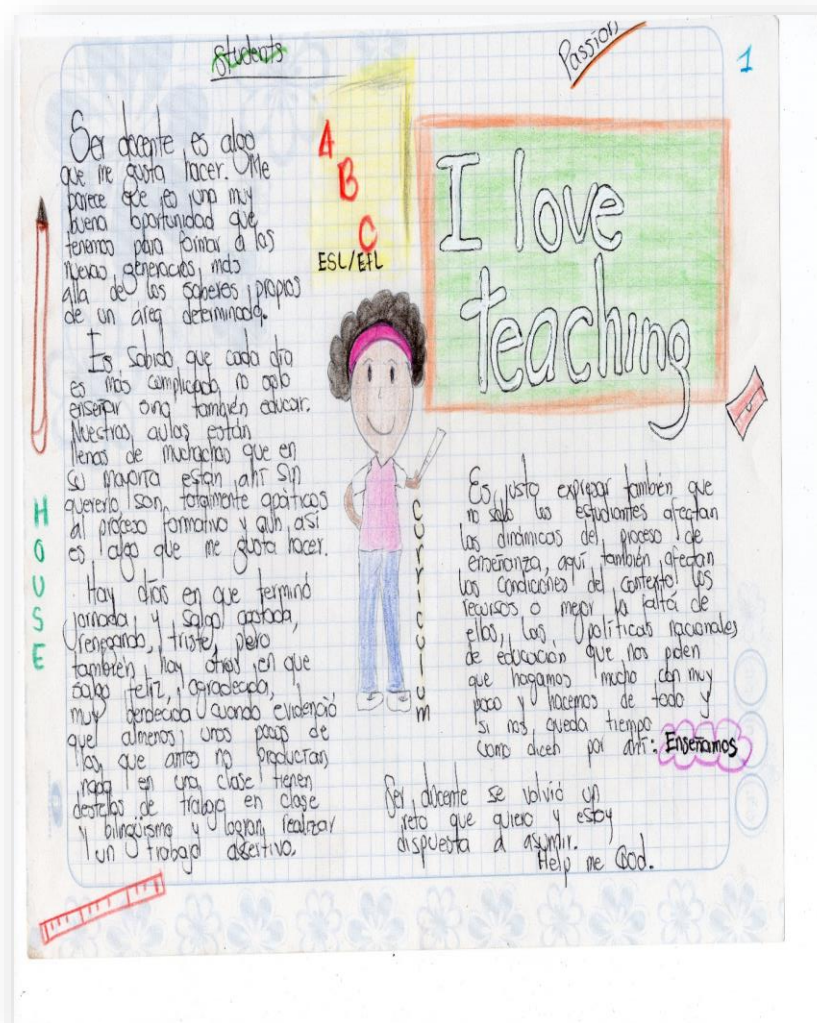 Students
Passion
1
Ser docente es algo
que me gusta hacer. Me
parece que es una muy
buena oportunidad que
tenemos para formar a las
nuevas generacios más
alla de los saberes propios
de un área determinada.
Es sabido que cada día
es más complicado, no solo
enseñar sino también educar.
Nuestras aulas están
llenas de muchachos que en
su mayoría estan ahí sin
quererlo, son totalmente apáticos
al proceso formativo y aún así
es algo que me gusta hacer.
Hay días en que terminó
jornada y salgo agotada,
renegando, triste, pero
también hay otros en que
salgo feliz, agradecida,
muy bendecida cuando evidenció
que almenos unos pocos de
los que antes no producían
nada en una clase tienen
destellos de trabajo en clase
y bilingüismo y logran realizar
un trabajo asertivo.
A
B
C
ESL/EFL
I love
teaching
HOUSE
curriculum
Es justo expresar también que
no solo los estudiantes afectan
las dinámicas del proceso de
enseñanza, aquí también afectan
las condiciones del contexto, los
recursos o mejor la falta de
ellos, las políticas nacionales
de educación que nos piden
que hagamos mucho con muy
poco y hacemos de todo y
si nos queda tiempo
como dicen por ahí: Enseñamos
Ser docente se volvió un
reto que quiero y estoy
dispuesta a asumir.
Help me God.